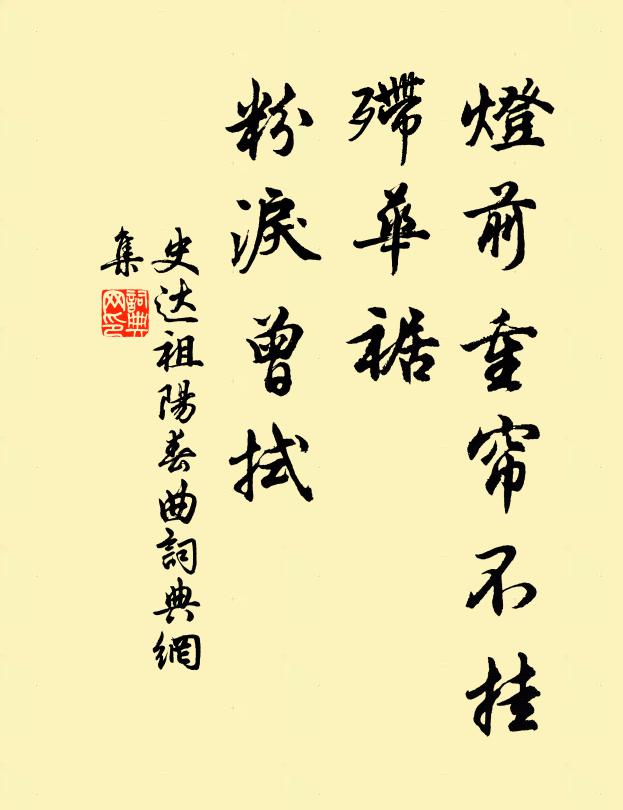 燈前重帘不挂
殢華裾
粉淚曾拭
史达祖陽春曲詞典網
集
詞典
网印